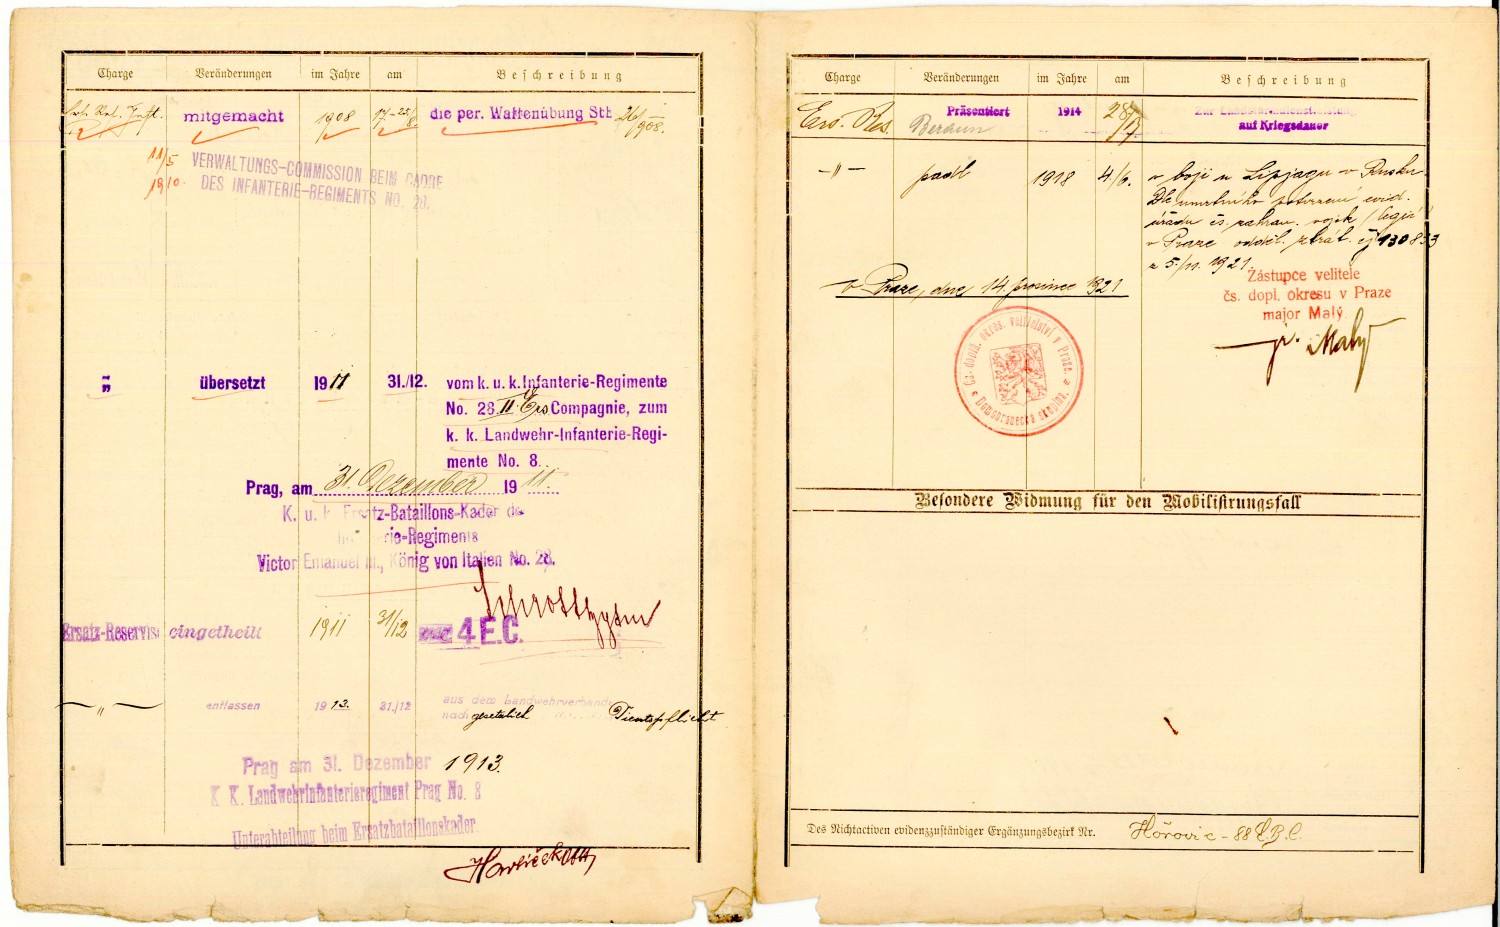 Charge Veränderungen im Jahre am Beschreibung
mitgemacht 1908 17.-25/8. die per. Waffenübung Stb 26/908.
11/5
1910.
VERWALTUNGS-COMMISSION BEIM CADRE
DES INFANTERIE-REGIMENTS NO. 28.
" übersetzt 1911 31./12. vom k. u. k. Infanterie-Regimente
No. 28 11. Ers Compagnie, zum
k. k. Landwehr-Infanterie-Regi-
mente No. 8.
Prag, am 31. Dezember 1911.
K. u. k. Ersatz-Bataillons-Kader des
Infanterie-Regiments
Victor Emanuel III., König von Italien No. 28.
Ersatz-Reservist eingetheilt 1911 31/12 zur 4 E.C.
" entlassen 1913. 31./12 aus dem Landwehrverbande
nach gesetzlich Dienstpflicht
Prag am 31. Dezember 1913.
K. K. Landwehrinfanterieregiment Prag No. 8
Unterabteilung beim Ersatzbataillonskader.
Charge Veränderungen im Jahre am Beschreibung
Ers. Res. Präsentiert 1914 28/7. Zur Landsturmdienstleistung
Beraun auf Kriegsdauer
-"- padl 1918 4/6. v boji u Lipjagu v Rusku.
Dle úmrtního potvrzení evid.
úřadu čs. zahran. vojsk /legií/
v Praze odděl. ztrát. čj 130833
z 5./11. 1921.
v Praze, dne 14. prosince 1921
Zástupce velitele
čs. dopl. okresu v Praze
major Malý
Malý
Čs. doplň. okres. velitelství v Praze.
Demobranecká skupina.
Besondere Widmung für den Mobilisirungsfall
Des Nichtactiven evidenzzuständiger Ergänzungsbezirk Nr. Hořovic - 88 E.B.C.